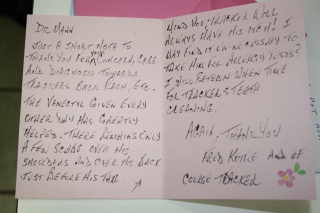 Dr. Mann
Just a short note to
thank you for your concern, care
and diagnosis towards
Trackers back rash, etc.
The Vanectyl given every
other day has greatly
helped. There remains only
a few scabs over his
shoulders and over his back
just before his tail.
Mind you, Tracker will
always have his itch! I
may find it un necessary to
take him for allergy tests?
I will return when time
for Trackers teeth
cleaning.
Again, thank you
Fred and of
course Tracker